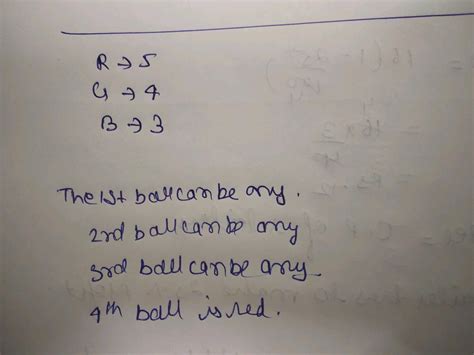 R → 5
G → 4
B → 3
The 1st ball can be any.
2rd ball can be any
3rd ball can be any.
4th ball is red.